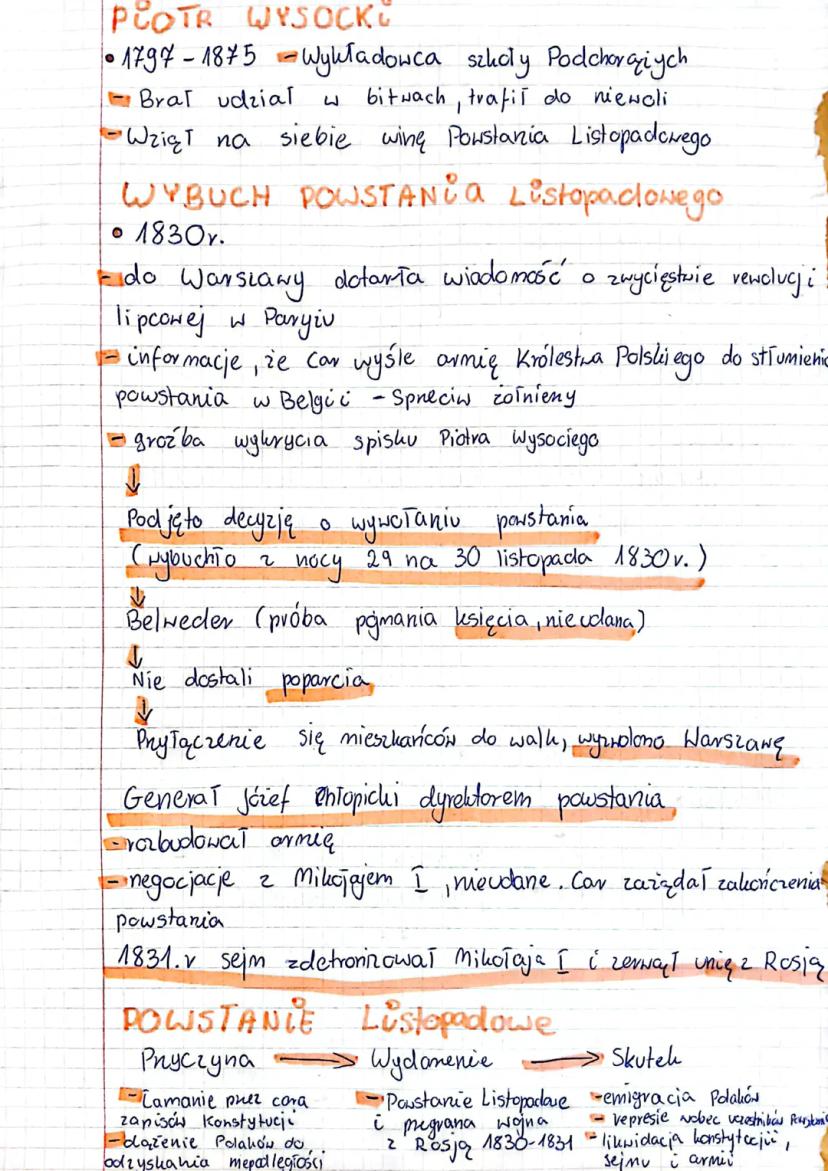 PIOTR WYSOCKI
• 1797 - 1875 - Wykładowca szkoły Podchorążych
- Brał udział w bitwach, trafił do niewoli
- Wziął na siebie winę Powstania Listopadowego
WYBUCH POWSTANIA Listopadowego
• 1830r.
- do Warszawy dotarła wiadomość o zwycięstwie rewolucji
lipcowej w Paryżu
- informacje, że car wyśle armię Królestwa Polskiego do stłumienia
powstania w Belgii - Sprzeciw żołnierzy
- groźba wykrycia spisku Piotra Wysociego
↓
Podjęto decyzję o wywołaniu powstania
(wybuchło z nocy 29 na 30 listopada 1830r.)
↓
Belweder (próba pojmania księcia, nieudana)
↓
Nie dostali poparcia
↓
Przyłączenie się mieszkańców do walk, wyzwolono Warszawę
Generał Józef Chłopicki dyrektorem powstania
- rozbudował armię
- negocjacje z Mikołajem I, nieudane. Car zażądał zakończenia
powstania
1831.r sejm zdetronizował Mikołaja I i zerwał unię z Rosją
POWSTANIE Listopadowe
Przyczyna → Wydarzenie → Skutek
- Łamanie przez cara - Powstanie Listopadowe - emigracja Polaków
zapisów Konstytucji i przegrana wojna - represje wobec uczestników Powstania
- dążenie Polaków do z Rosją 1830-1831 - likwidacja konstytucji,
odzyskania niepodległości sejmu i armii